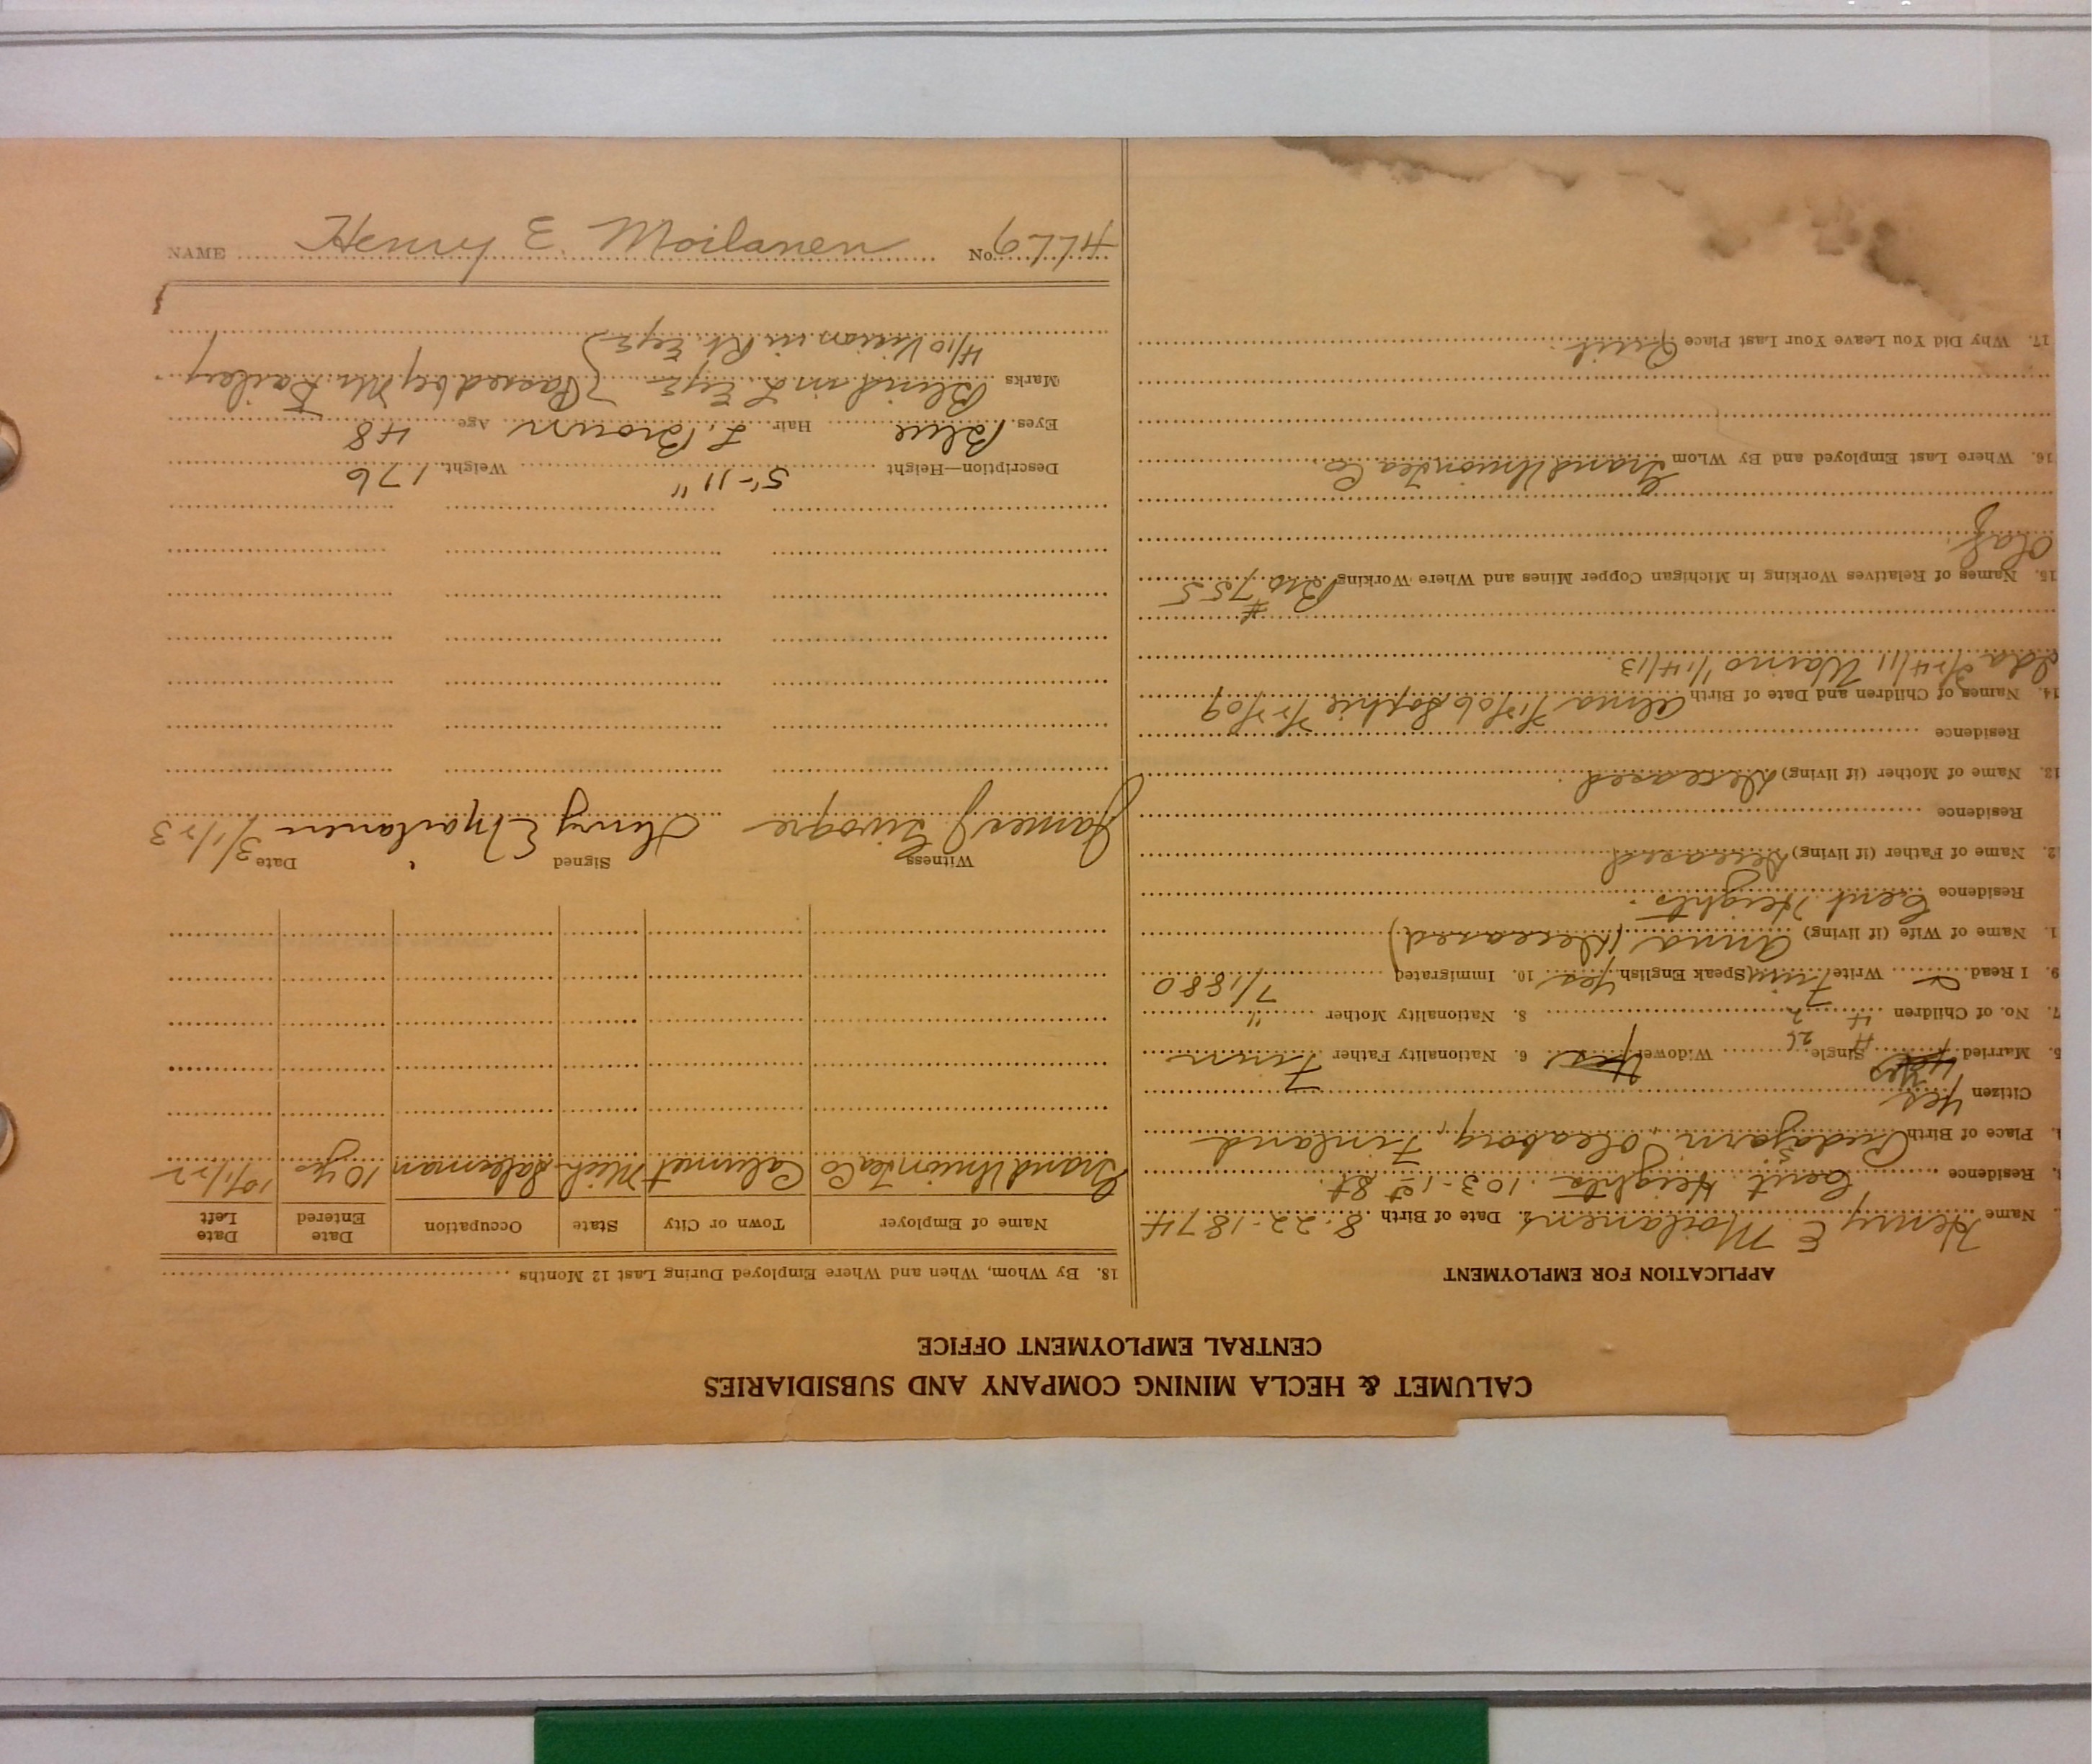 CALUMET & HECLA MINING COMPANY AND SUBSIDIARIES
CENTRAL EMPLOYMENT OFFICE
APPLICATION FOR EMPLOYMENT
Name Henry E. Moilanen 2. Date of Birth 8-22-1874
Residence Cent Heights 103-1st St.
Place of Birth Oleaborg, Finland
Citizen Yes
5. Married Single Widower Yes 6. Nationality Father Finn
7. No. of Children 4 8. Nationality Mother "
9. I Read Write Finn Speak English Yes 10. Immigrated 7/1880
1. Name of Wife (if living) Anna (Deceased)
Residence Cent Heights.
2. Name of Father (if living) Deceased
Residence
13. Name of Mother (if living) Deceased.
Residence
14. Names of Children and Date of Birth Alma Sophie
Ida 3/24/11 Waino 1/14/13
15. Names of Relatives Working in Michigan Copper Mines and Where Working Bro #755
Olaf
16. Where Last Employed and By Whom Grand Union Tea Co.
17. Why Did You Leave Your Last Place Quit
18. By Whom, When and Where Employed During Last 12 Months
Name of Employer Town or City State Occupation Date Entered Date Left
Grand Union Tea Co Calumet Mich Salesman 10 yrs 10/1/22
Witness Signed Date
James J Henry E Moilanen 3/1/23
Description—Height 5'-11" Weight 176
Eyes Blue Hair L. Brown Age 48
Marks Blind in L. Eye } Passed by Mr.
4/10 Vision in Rt. Eye }
NAME Henry E. Moilanen No.